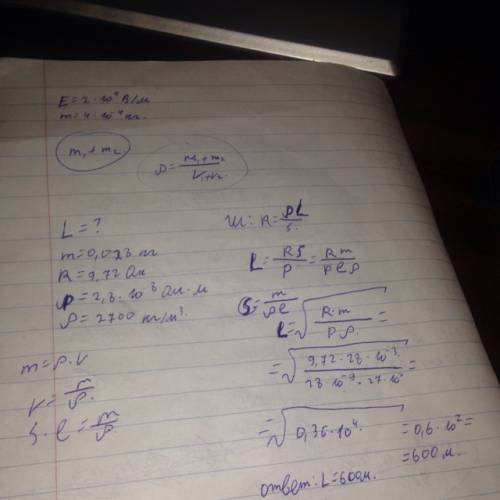 E = 2·10⁴ В/м
m = 4·10⁻⁴ кг.
m₁ + m₂
ρ = m₁ + m₂ / V₁ + V₂
L = ?
m = 0,023 кг
R = 9,72 Ом
ρ = 2,8·10⁻⁸ Ом·м
ρ = 2700 кг/м³
m = ρ·V
V = m/ρ
S·l = m/ρ
R = ρL/S
L = RS/ρ = Rm/ρlρ
S = m/ρl
L = √(R·m/ρρ) =
= √(9,72·23·10⁻³/28·10⁻⁹·27·10²) =
= √(0,36·10⁴) = 0,6·10² =
= 600 м.
ответ: L = 600 м.